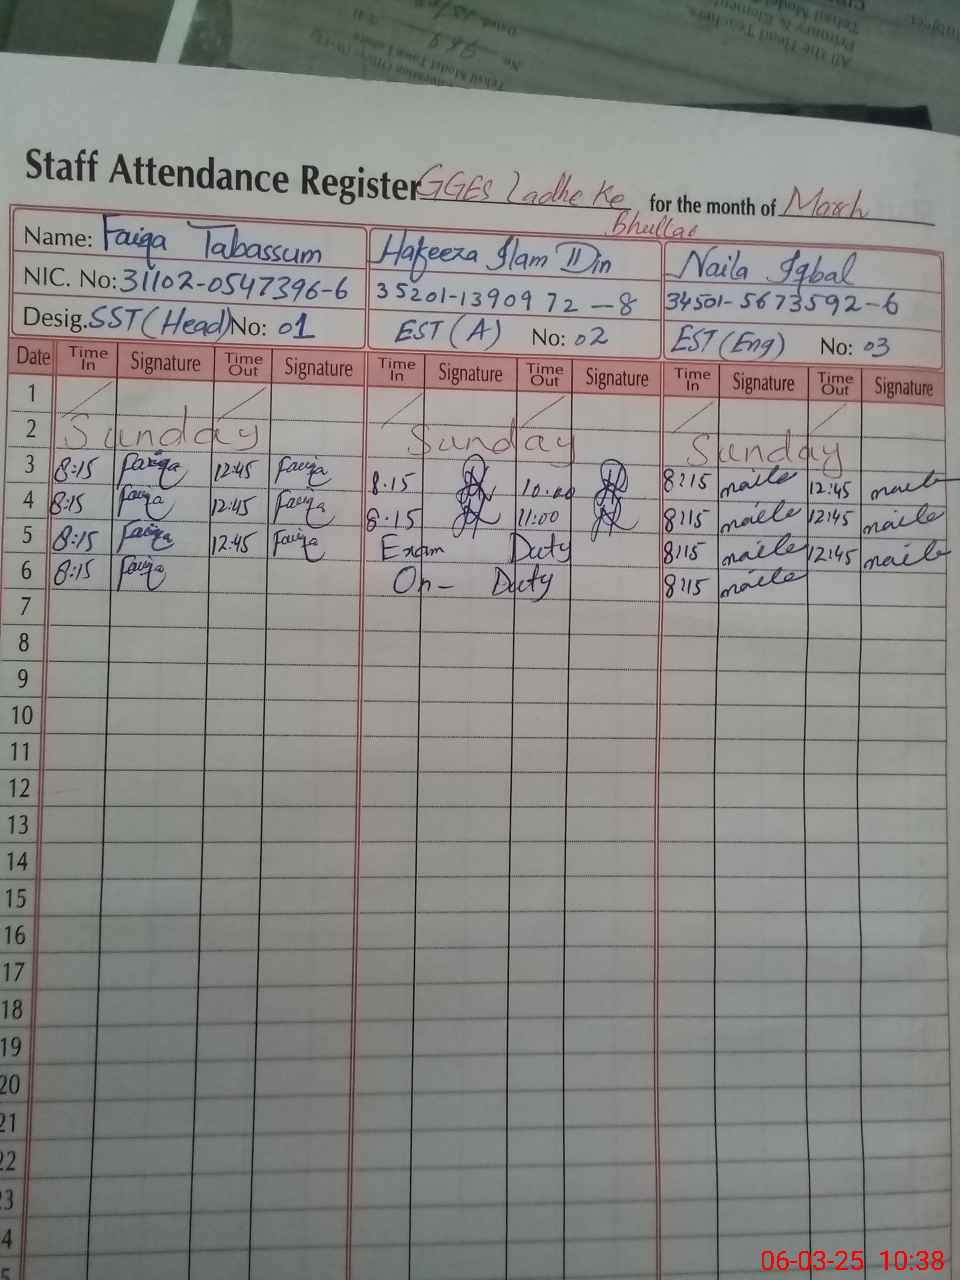 Staff Attendance Register GGES Ladhe Ke for the month of March
Bhullar
Name: Faiqa Tabassum Hafeeza Ilam Din Naila Iqbal
NIC. No: 31102-0547396-6 35201-1390972-8 34501-5673592-6
Desig. SST (Head) No: 01 EST (A) No: 02 EST (Eng) No: 03
Date Time In Signature Time Out Signature Time In Signature Time Out Signature Time In Signature Time Out Signature
1
2 Sunday Sunday Sunday
3 8:15 Faiqa 12:45 Faiqa 8.15 10.00 8:15 naila 12:45 naila
4 8:15 Faiqa 12:45 Faiqa 8.15 11:00 8:15 naila 12:45 naila
5 8:15 Faiqa 12:45 Faiqa Exam Duty 8:15 naila 12:45 naila
6 8:15 Faiqa On- Duty 8:15 naila
7
8
9
10
11
12
13
14
15
16
17
18
19
20
21
22
23
4
5
06-03-25 10:38